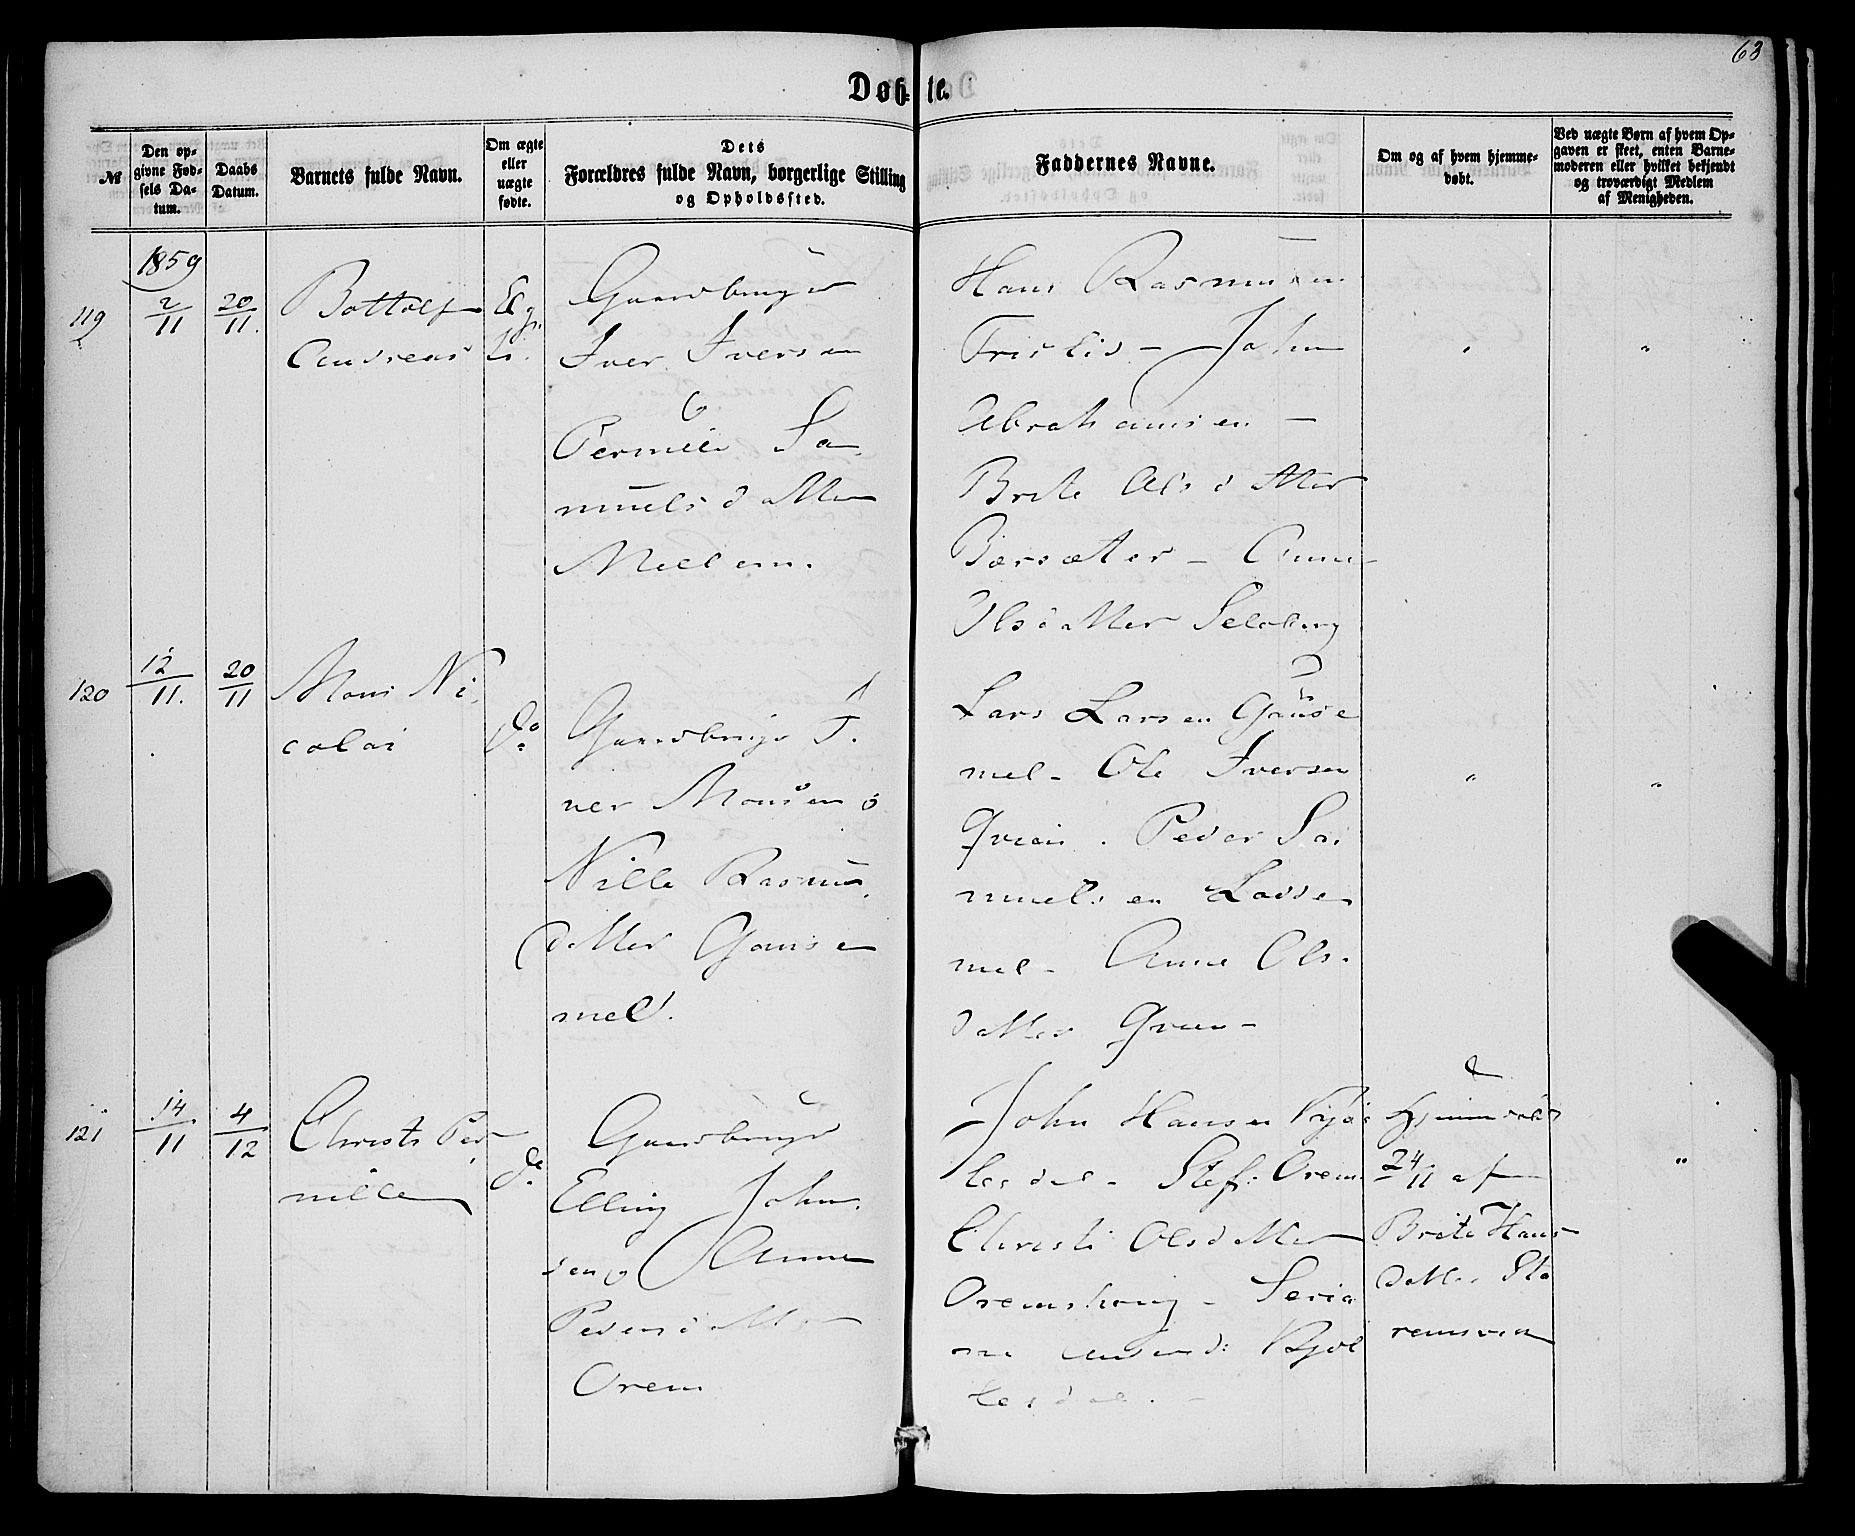 63
Døbte.
№
Den opgivne Fødsels Datum.
Daabs Datum.
Barnets fulde Navn.
Om ægte eller uægte fødte.
Dets Forældres fulde Navn, borgerlige Stilling og Opholdssted.
Faddernes Navne.
Om og af hvem hjemmedøbt.
Ved uægte Børn af hvem Opgaven er skeet, enten Barnemoderen eller hvilket bekjendt og troværdigt Medlem af Menigheden.
1859
119
2/11
20/11.
Bottolf
Andreas
Gaardbruger
Iver Iversen
Sa
muelsdatter
Mellem.
Hans Rasmusen
John
Abrahamsen -
Brite Olsdatter
Børsæter - Anne
Olsdatter
"
"
120
12/11.
20/11
Mons Ni
colai
do.
Gaardbruger
Monsen o
Nille Rasmus
datter Gouse
mel.
Lars Larsen Gouse
mel - Ole Iversen
Peder Sa
muelsen Lasse
mel - Anne Ols.
datter
"
"
121
14/11
4/12
Christi Per
nille
do.
Gaardbruger
Elling John
sen o Anne
Pedersdatter
Orem
John Hansen Kjøl
lesdal - Stef: Orem
Christi Olsdatter
Oremshoug - Seria
Kjøl
lesdal. -
Hjemmedøbt
24/11 af
Brite Hans
datter Sto
"